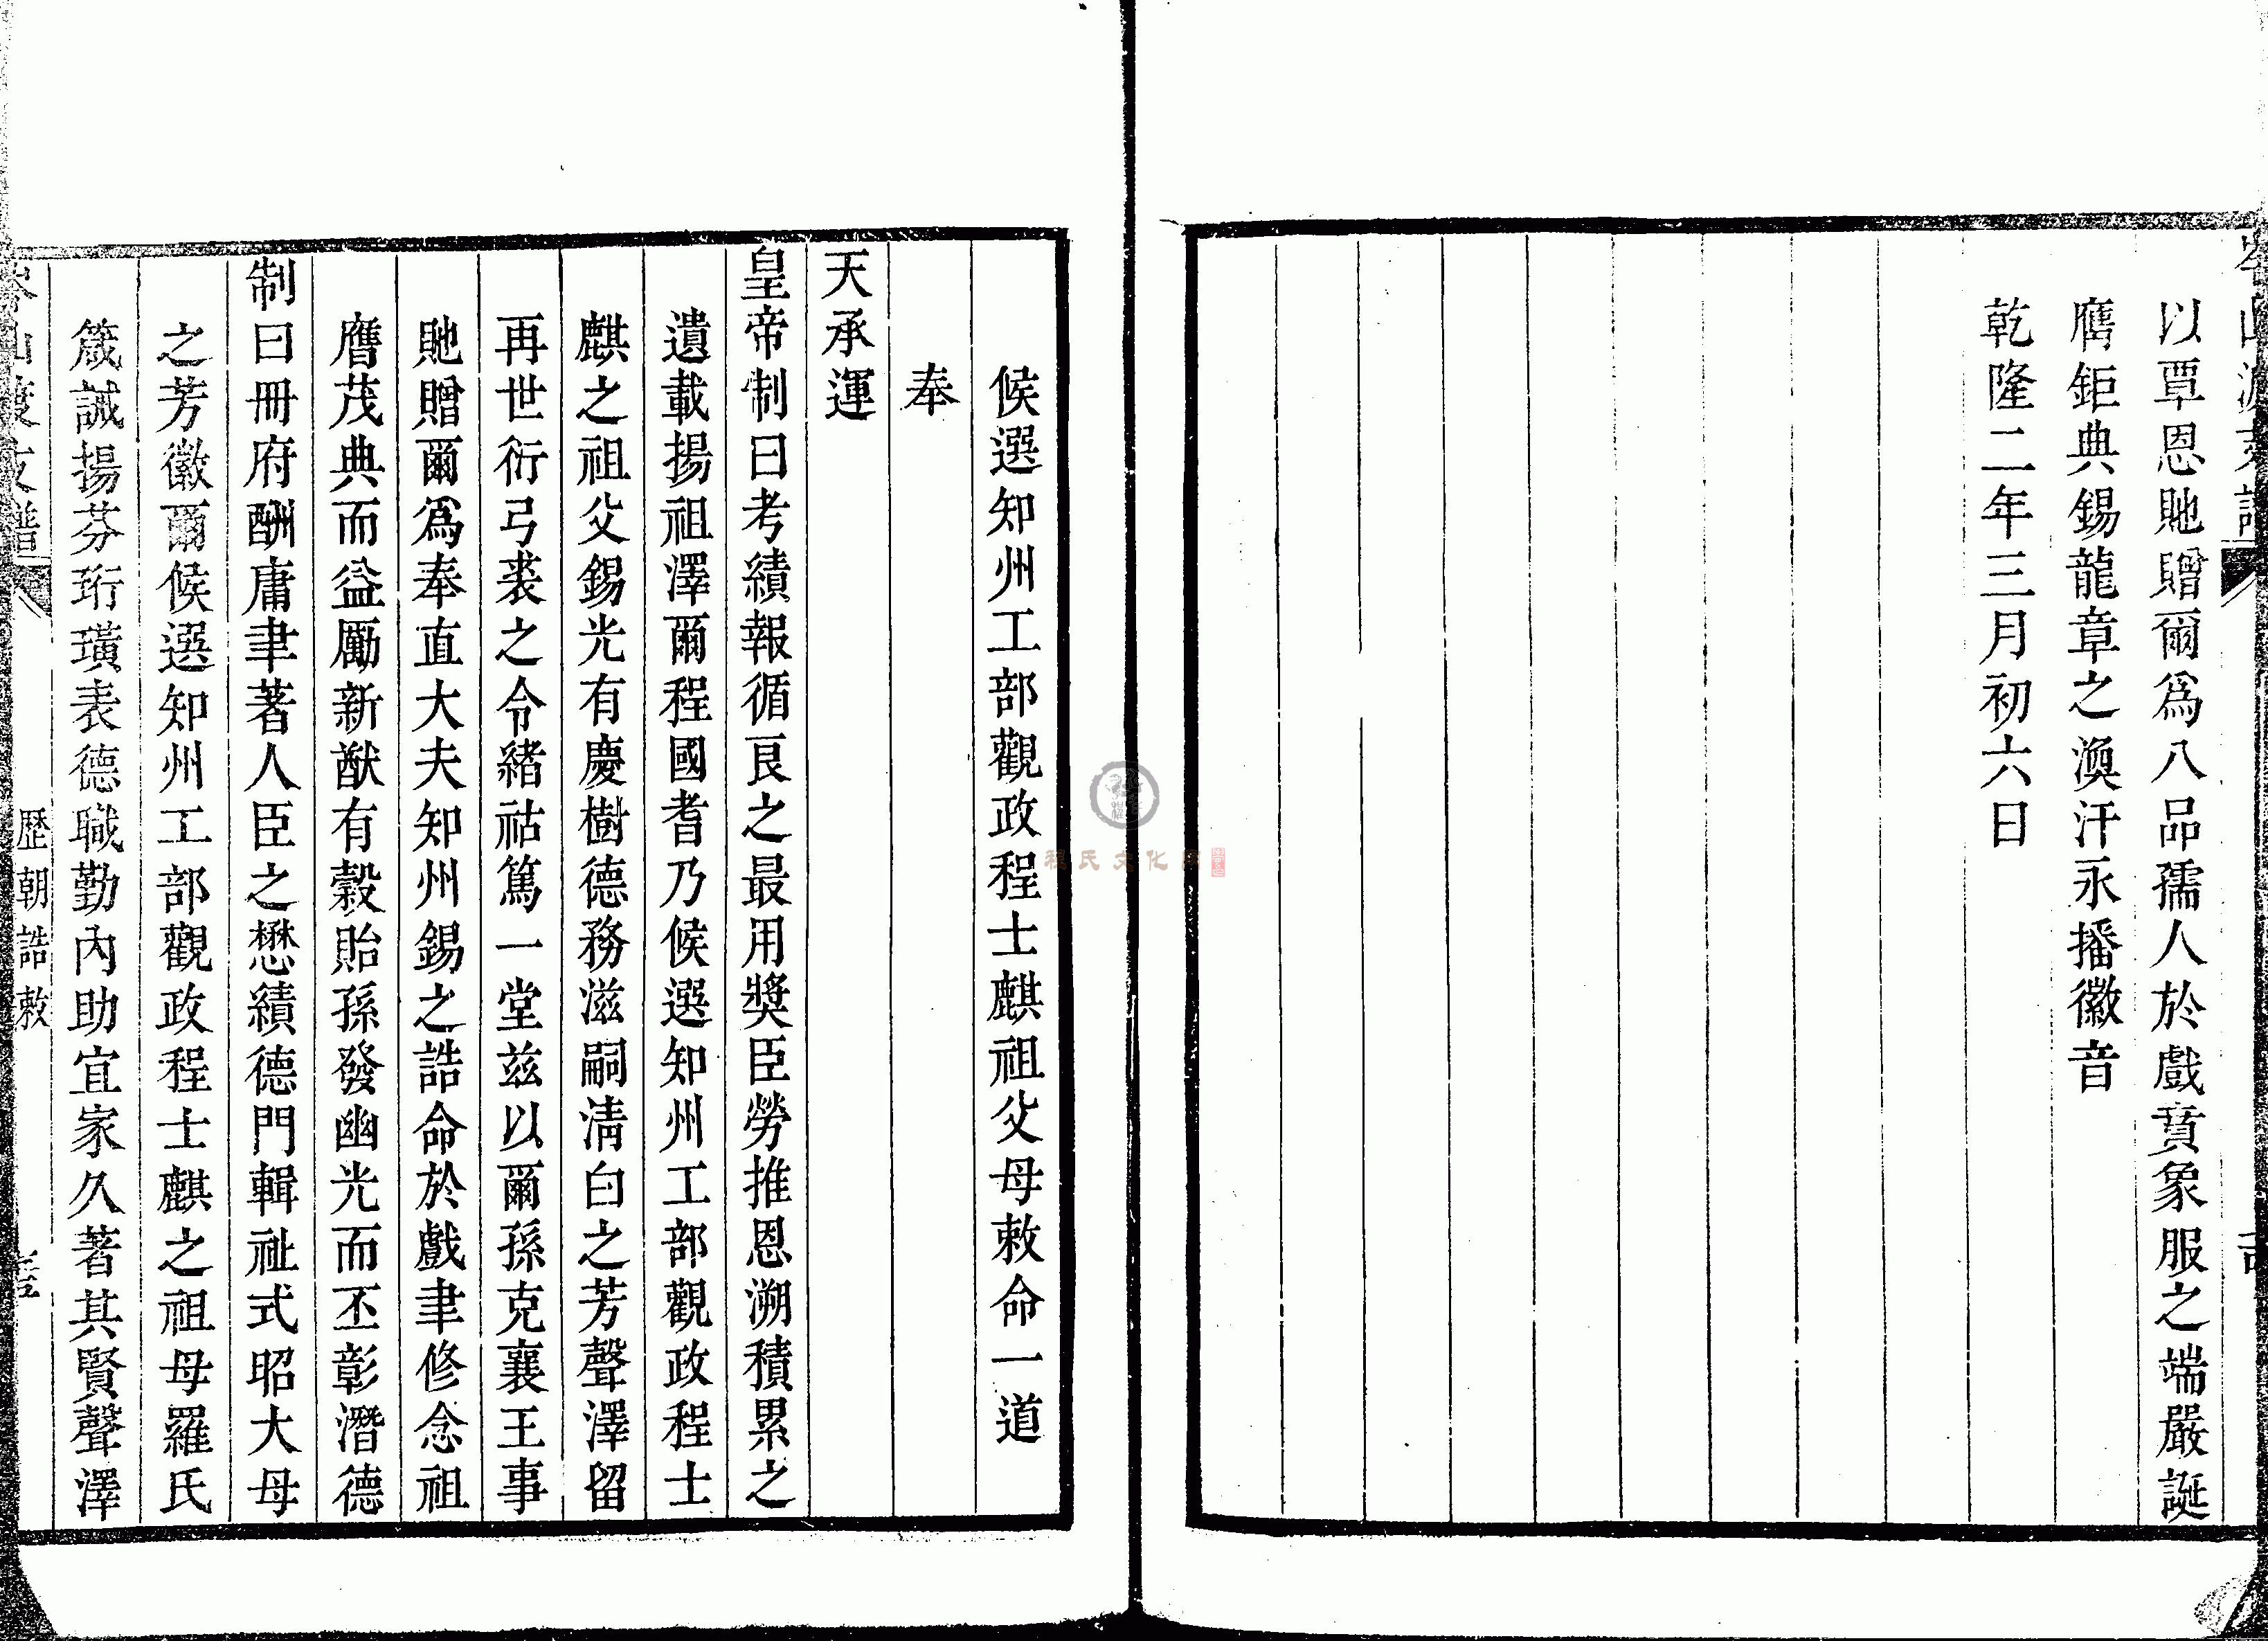 以覃恩貤贈爾爲八品孺人於戲賁象服之端嚴誕
膺鉅典錫龍章之渙汗永播徽音
乾隆二年三月初六日
候選知州工部觀政程士麒祖父母敕命一道
奉
天承運
皇帝制曰考績報循良之最用獎臣勞推恩溯積累之
遺載揚祖澤爾程國耆乃候選知州工部觀政程士
麒之祖父錫光有慶樹德務滋嗣淸白之芳聲澤留
再世衍弓裘之令緒祜篤一堂兹以爾孫克襄王事
貤贈爾爲奉直大夫知州錫之誥命於戲聿修念祖
膺茂典而益勵新猷有穀貽孫發幽光而丕彰潛德
制曰冊府酬庸聿著人臣之懋績德門輯祉式昭大母
之芳徽爾候選知州工部觀政程士麒之祖母羅氏
箴誡揚芬珩璜表德職勤內助宜家久著其賢聲澤
歷朝誥敕
程氏文化